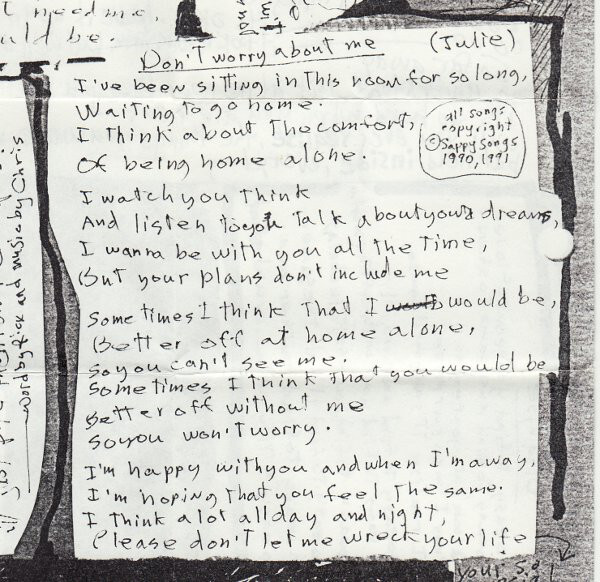 t need me,
uld be.
Don't worry about me (Julie)
I've been sitting in this room for so long,
Waiting to go home.
I think about the comfort,
Of being home alone.
all songs
copyright
©Sappy Songs
1990, 1991
I watch you think
And listen to you talk about your dreams,
I wanna be with you all the time,
But your plans don't include me
Sometimes I think that I would be,
Better off at home alone,
so you can't see me.
Sometimes I think that you would be
Better off without me
So you won't worry.
I'm happy with you and when I'm away,
I'm hoping that you feel the same.
I think alot all day and night,
Please don't let me wreck your life
your s
and music by Chris